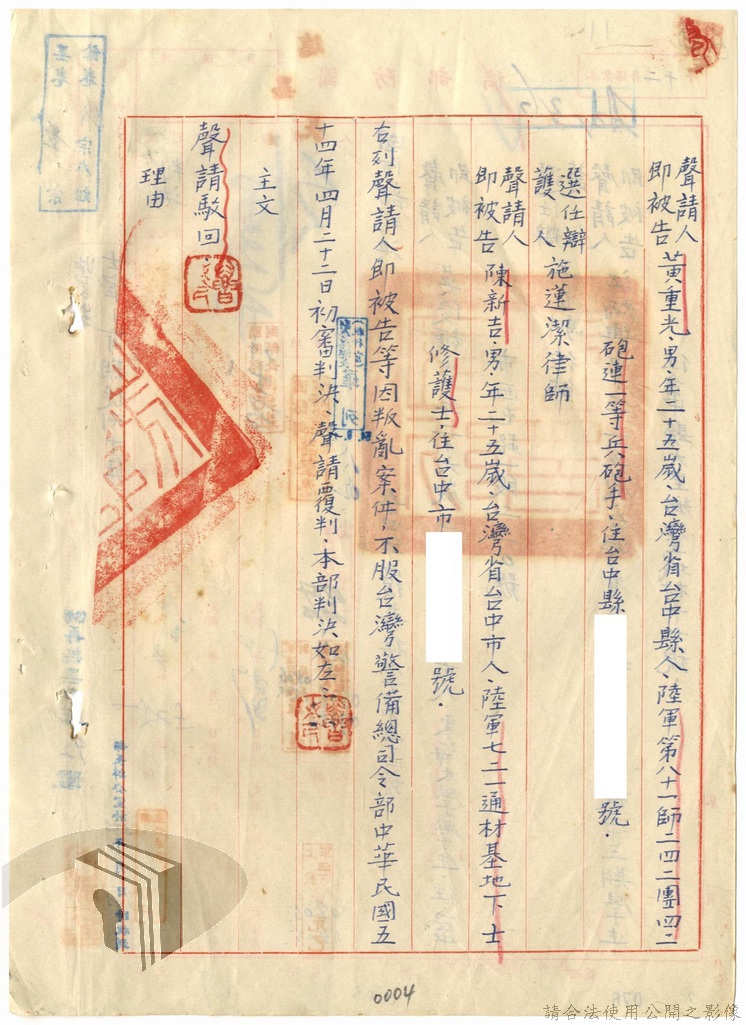 聲請人
即被告 黃重光、男、年二十五歲、台灣省台中縣人、陸軍第八十一師二四二團四二
砲連一等兵砲手、住台中縣
號.
選任辯
護人 施蓮潔律師
聲請人
即被告 陳新吉、男、年二十五歲、台灣省台中市人、陸軍七二一通材基地下士
修護士、住台中市
號.
右列聲請人即被告等因叛亂案件、不服台灣警備總司令部中華民國五
十四年四月二十二日初審判決、聲請覆判、本部判決如左:
主文
聲請駁回
理由
0004
請合法使用公開之影像